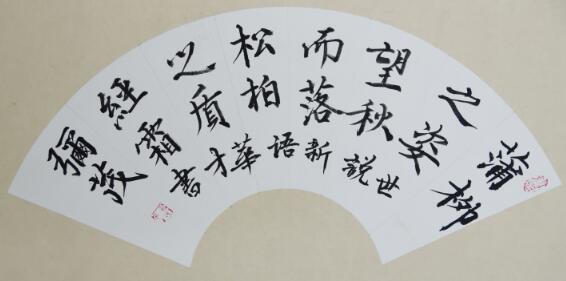 蒲柳
之姿
望秋
而落
松柏
之盾
經霜
彌茂
世説新语華才書